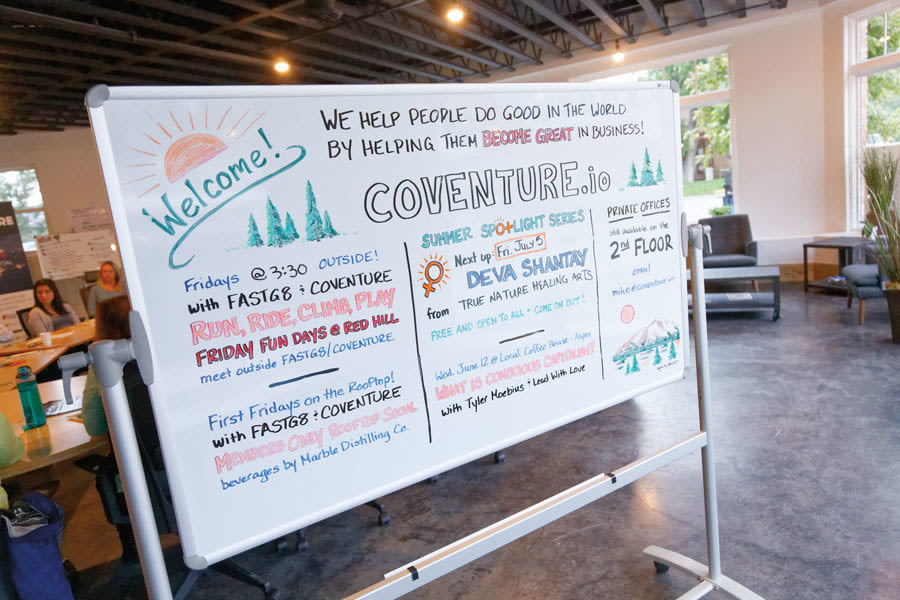 Welcome!
WE HELP PEOPLE DO GOOD IN THE WORLD
BY HELPING THEM BECOME GREAT IN BUSINESS!
COVENTURE.io
Fridays @ 3:30 OUTSIDE!
with FASTG8 + COVENTURE
RUN, RIDE, CLIMB, PLAY
FRIDAY FUN DAYS @ RED HILL
meet outside FASTG8/COVENTURE
First Fridays on the Rooftop!
with FASTG8 + COVENTURE
MEMBERS ONLY ROOFTOP SOCIAL
beverages by Marble Distilling Co.
SUMMER SPOTLIGHT SERIES
Next up: Fri. July 5
DEVA SHANTAY
from TRUE NATURE HEALING ARTS
FREE AND OPEN TO ALL - COME ON OUT!
Wed. June 12 @ Local Coffee House - Aspen
WHAT IS CONSCIOUS CAPITALISM?
with Tyler Moebius + Lead With Love
PRIVATE OFFICES
still available on the
2nd FLOOR
email
mike@coventure.io